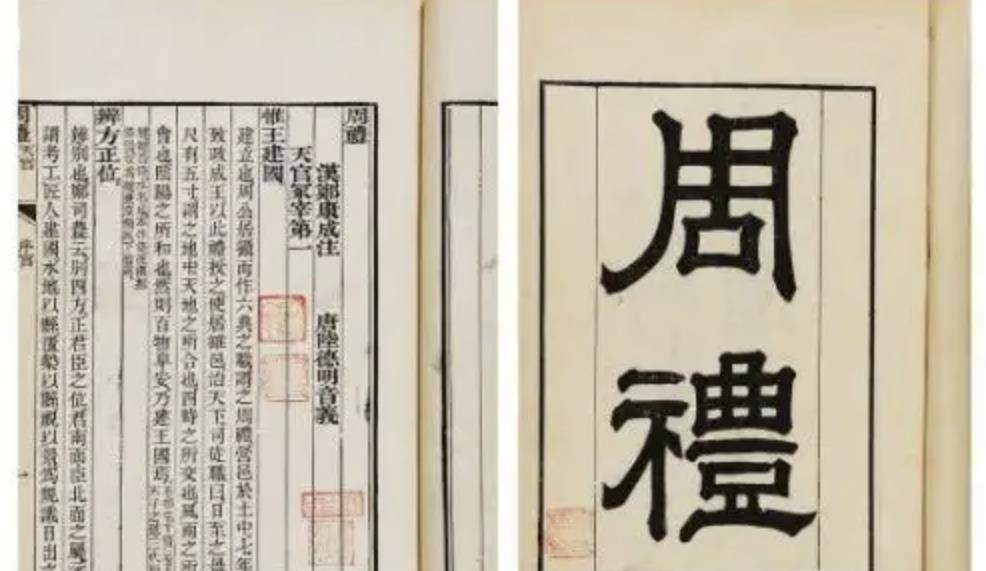 周禮
周禮
漢鄭康成注 唐陸德明音義
天官冢宰第一
惟王建國
建立也周公居攝而作六典之職謂之周禮營邑於土中七年
致政成王以此禮授之使居雒邑治天下司徒職曰日至之景
尺有五寸謂之地中天地之所合也四時之所交也風雨之所
會也陰陽之所和也然則百物阜安乃建王國焉
辨方正位
辨別也鄭司農云別四方正君臣之位君南面臣北面之屬
謂考工匠人建國水地以縣置槷以縣眡以景爲規識日出之
周禮 天官 序官 一